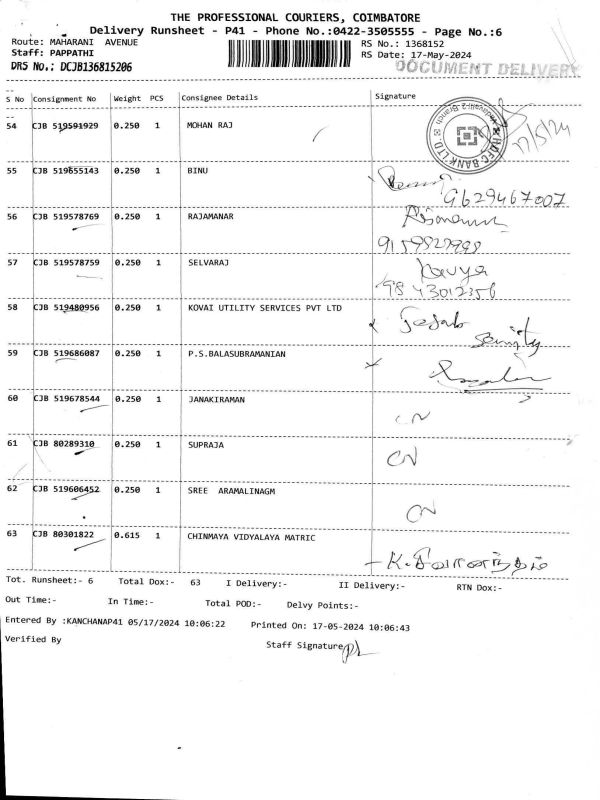 THE PROFESSIONAL COURIERS, COIMBATORE
Delivery Runsheet - P41 - Phone No.:0422-3505555 - Page No.:6
Route: MAHARANI AVENUE
RS No.: 1368152
Staff: PAPPATHI
RS Date: 17-May-2024
DRS No.: DCJB136815206
DOCUMENT DELIVERY
S No Consignment No Weight PCS Consignee Details Signature
54 CJB 519591929 0.250 1 MOHAN RAJ
HDFC BANK LTD. Branch
17/5/24
55 CJB 519655143 0.250 1 BINU
9629467007
56 CJB 519578769 0.250 1 RAJAMANAR
57 CJB 519578759 0.250 1 SELVARAJ Kavya
9843012356
58 CJB 519480956 0.250 1 KOVAI UTILITY SERVICES PVT LTD
59 CJB 519686087 0.250 1 P.S.BALASUBRAMANIAN
60 CJB 519678544 0.250 1 JANAKIRAMAN CN
61 CJB 80289310 0.250 1 SUPRAJA CN
62 CJB 519606452 0.250 1 SREE ARAMALINAGM CN
63 CJB 80301822 0.615 1 CHINMAYA VIDYALAYA MATRIC
Tot. Runsheet:- 6 Total Dox:- 63 I Delivery:- II Delivery:- RTN Dox:-
Out Time:- In Time:- Total POD:- Delvy Points:-
Entered By :KANCHANAP41 05/17/2024 10:06:22 Printed On: 17-05-2024 10:06:43
Verified By Staff Signature